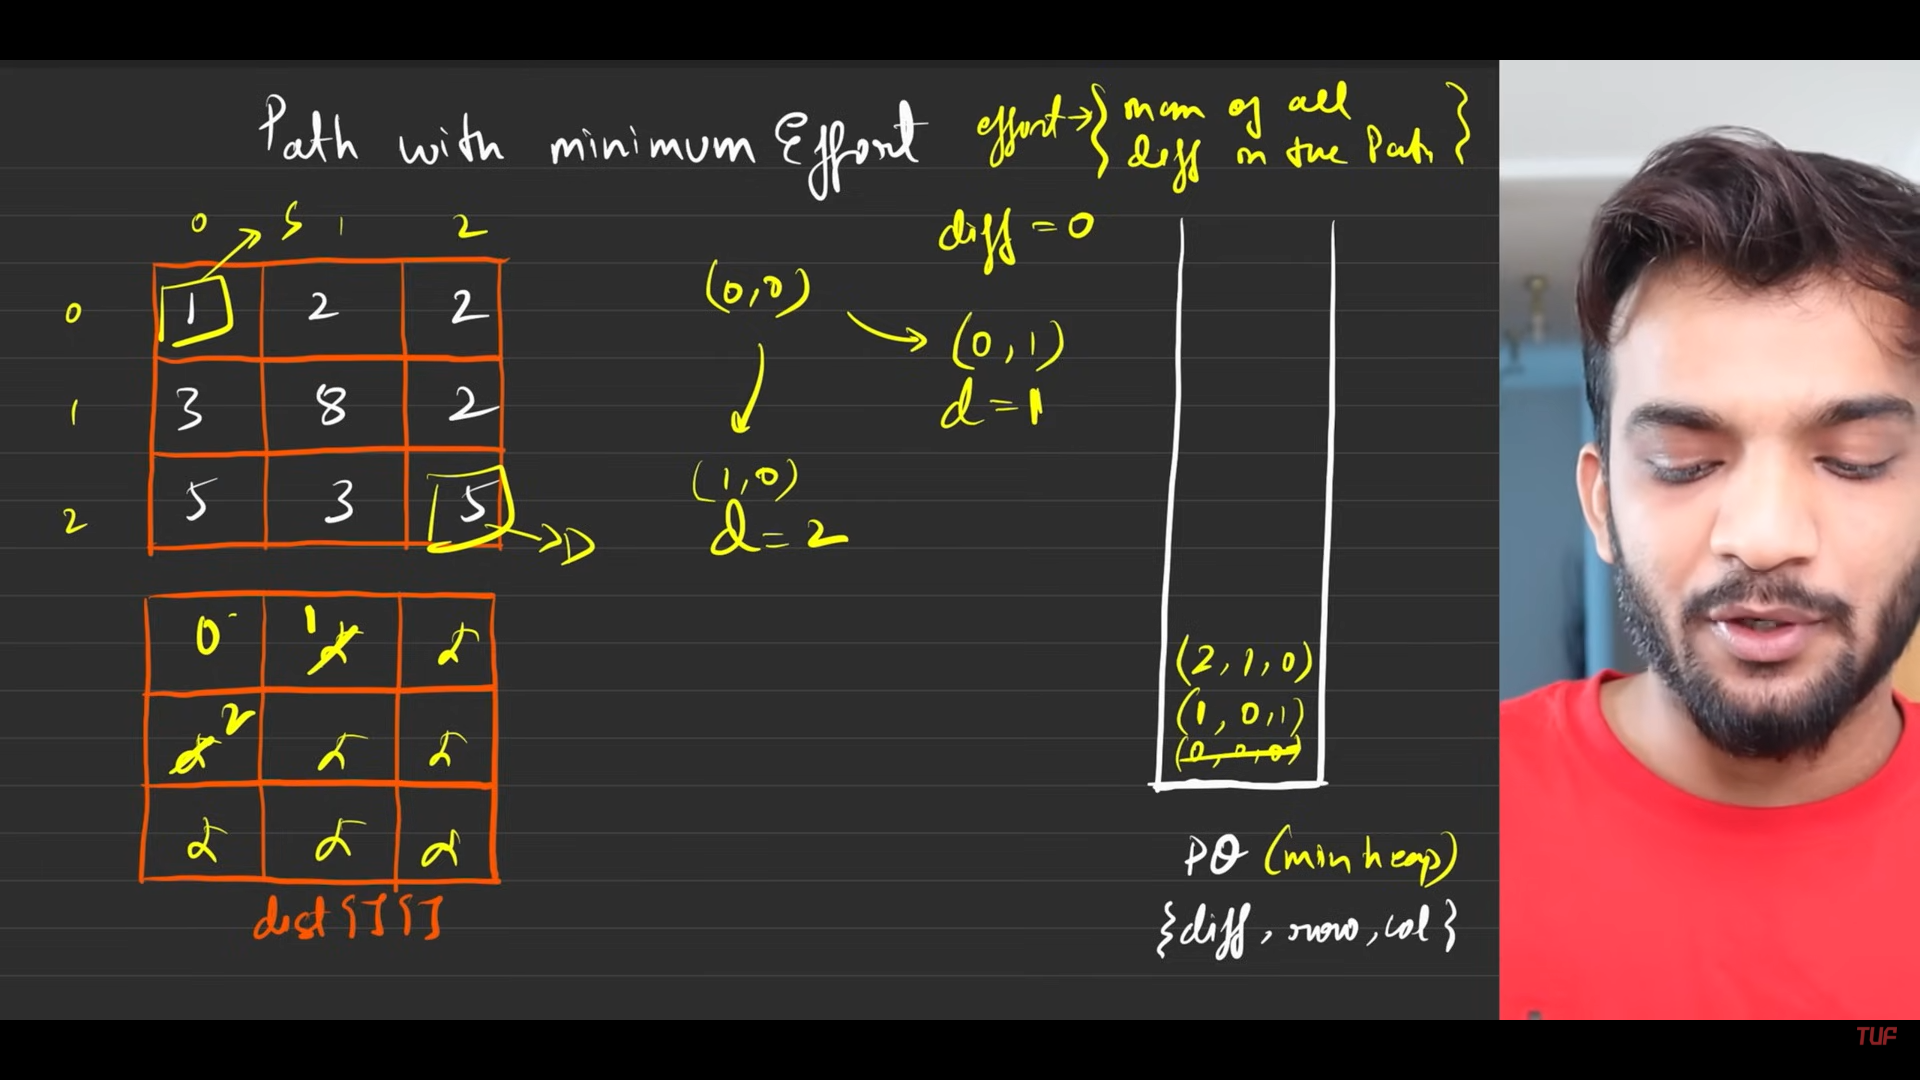 Path with minimum Effort
effort → { max of all
diff in the Path }
0 S 1 2
0 1 2 2
1 3 8 2
2 5 3 5 → D
diff = 0
(0,0)
(0,1)
d = 1
(1,0)
d = 2
0 1 ∝ ∝
∝ 2 ∝ ∝
∝ ∝ ∝
dist[][]
(2,1,0)
(1,0,1)
(0,0,0)
PQ (min heap)
{diff, row, col}
TUF